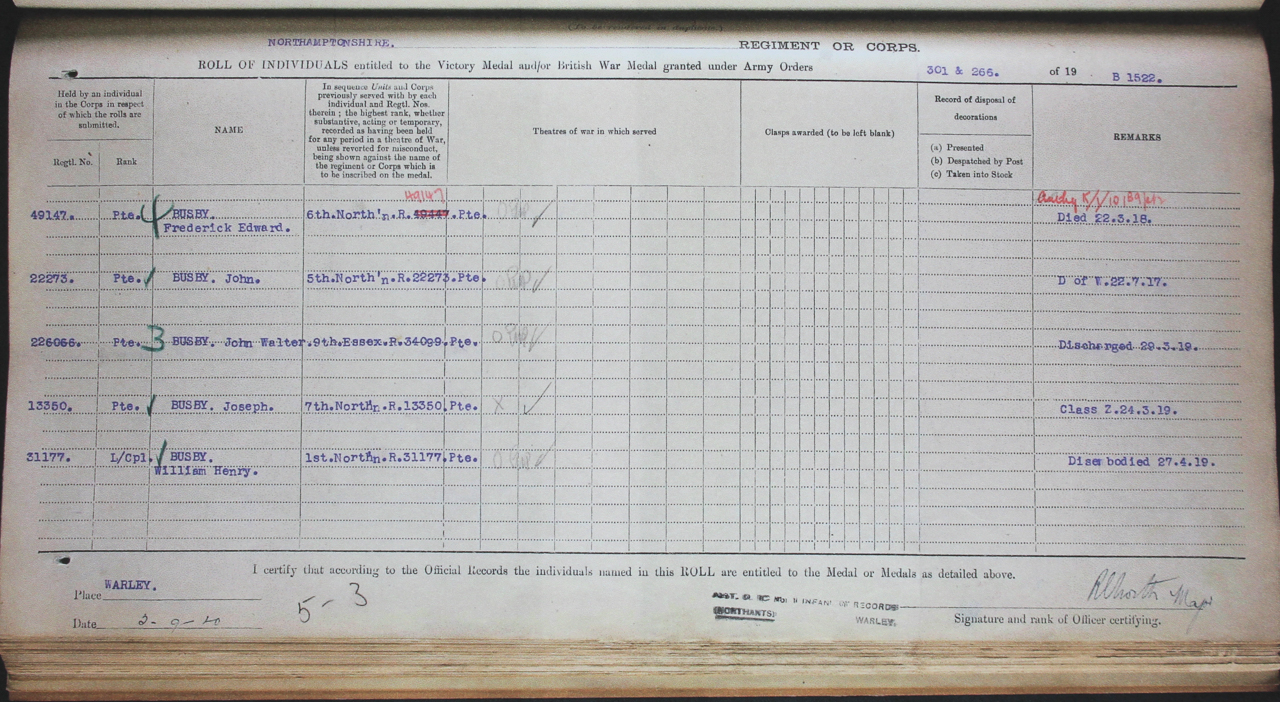 (To be rendered in duplicate.)
NORTHAMPTONSHIRE. REGIMENT OR CORPS.
ROLL OF INDIVIDUALS entitled to the Victory Medal and/or British War Medal granted under Army Orders 301 & 266. of 19 B 1522.
Held by an individual
in the Corps in respect
of which the rolls are
submitted.
Regtl. No. Rank
NAME
In sequence Units and Corps
previously served with by each
individual and Regtl. Nos.
therein ; the highest rank, whether
substantive, acting or temporary,
recorded as having been held
for any period in a theatre of War,
unless reverted for misconduct,
being shown against the name of
the regiment or Corps which is
to be inscribed on the medal.
Theatres of war in which served
Clasps awarded (to be left blank)
Record of disposal of
decorations
(a) Presented
(b) Despatched by Post
(c) Taken into Stock
REMARKS
49147
49147. Pte. 4 BUSBY. 6th.North'n.R.49447.Pte. Died 22.3.18.
Frederick Edward.
22273. Pte. BUSBY. John. 5th.North'n.R.22273.Pte. D of W.22.7.17.
226066. Pte. 3 BUSBY. John Walter.9th.Essex.R.34099.Pte. Discharged 29.3.19.
13350. Pte. BUSBY. Joseph. 7th.North'n.R.13350.Pte. X Class Z.24.3.19.
31177. L/Cpl. BUSBY. 1st.North'n.R.31177.Pte. Disembodied 27.4.19.
William Henry.
I certify that according to the Official Records the individuals named in this ROLL are entitled to the Medal or Medals as detailed above.
Place WARLEY.
Date 2-9-20
5-3
INFANTRY RECORDS
(NORTHANTS)
WARLEY.
Signature and rank of Officer certifying.